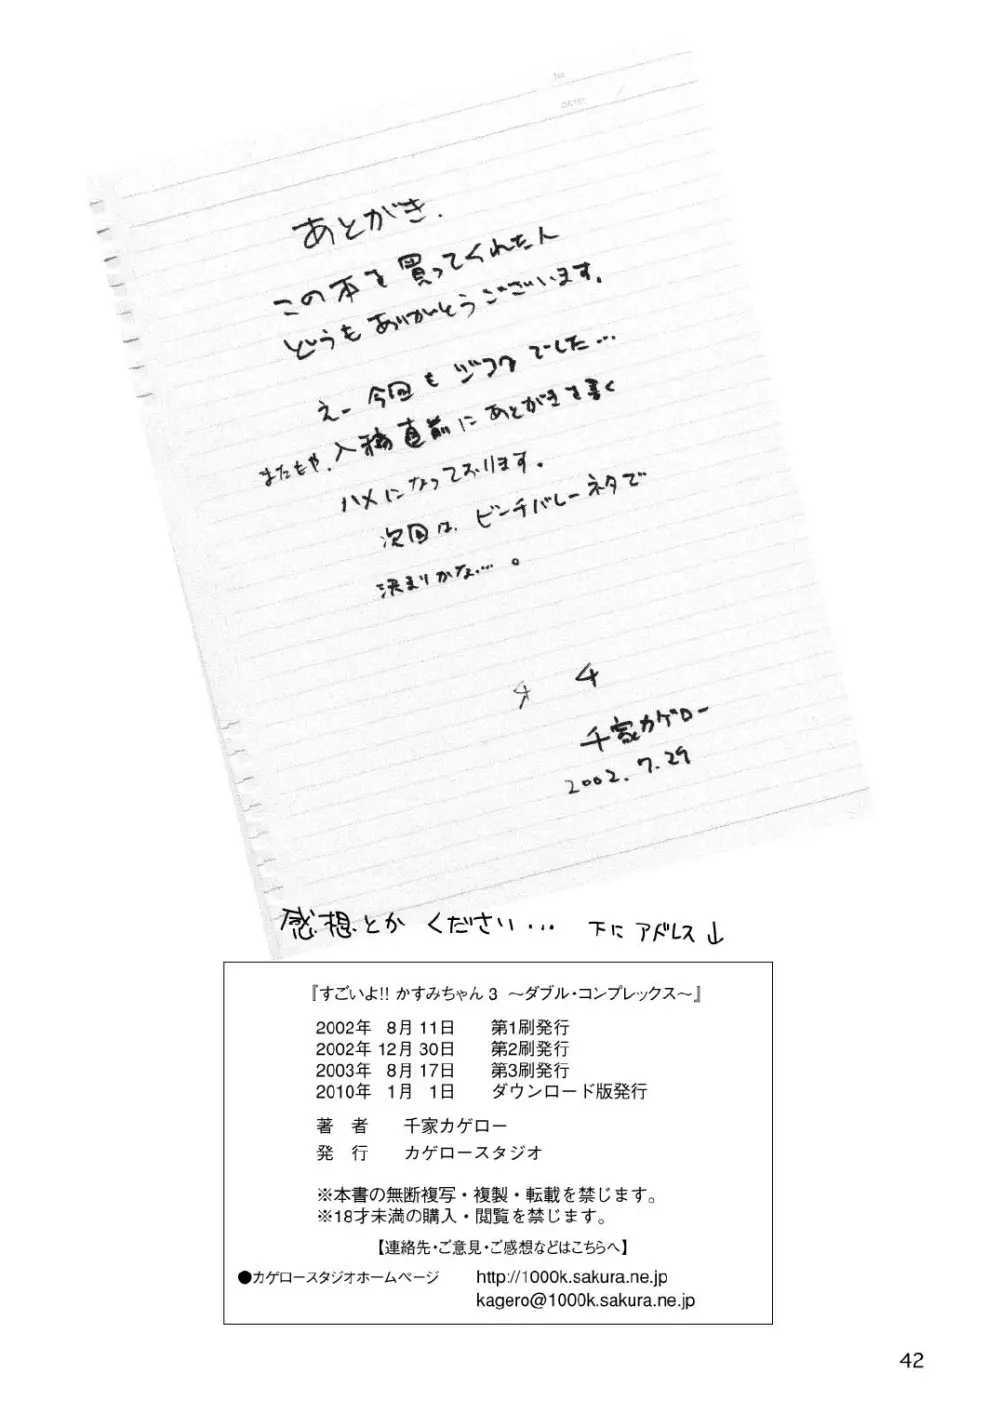 あとがき.
この本を買ってくれた人
どうもありがとうございます.
えー今回もジゴクでした…
またもや、入稿直前にあとがきを書く
ハメになっております.
次回は、ピンチバレーネタで
決まりかな…。
千家カゲロー
2002.7.29
感想とかください… 下にアドレス↓
『すごいよ!! かすみちゃん3 ～ダブル・コンプレックス～』
2002年 8月11日 第1刷発行
2002年12月30日 第2刷発行
2003年 8月17日 第3刷発行
2010年 1月 1日 ダウンロード版発行
著 者 千家カゲロー
発 行 カゲロースタジオ
※本書の無断複写・複製・転載を禁じます。
※18才未満の購入・閲覧を禁じます。
【連絡先・ご意見・ご感想などはこちらへ】
●カゲロースタジオホームページ http://1000k.sakura.ne.jp
kagero@1000k.sakura.ne.jp
42